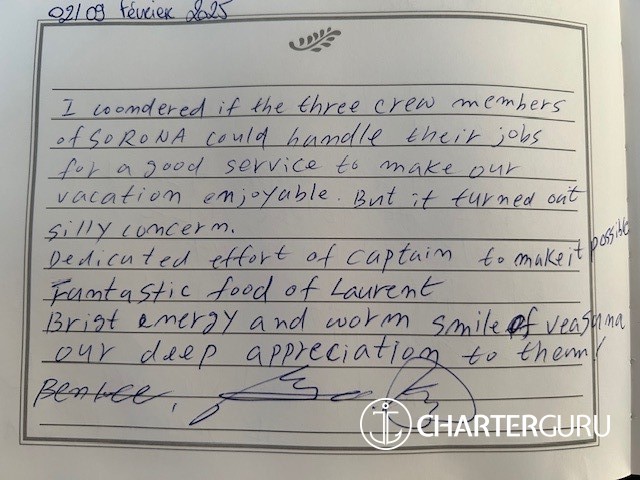 02/09 Février 2025
I woondered if the three crew members
of SORONA could handle their jobs
for a good service to make our
vacation enjoyable. But it turned out
silly concern.
Dedicated effort of captain to make it possible
Fantastic food of Laurent
Brigt energy and worm smile of veasna
our deep appreciation to them!
CHARTERGURU